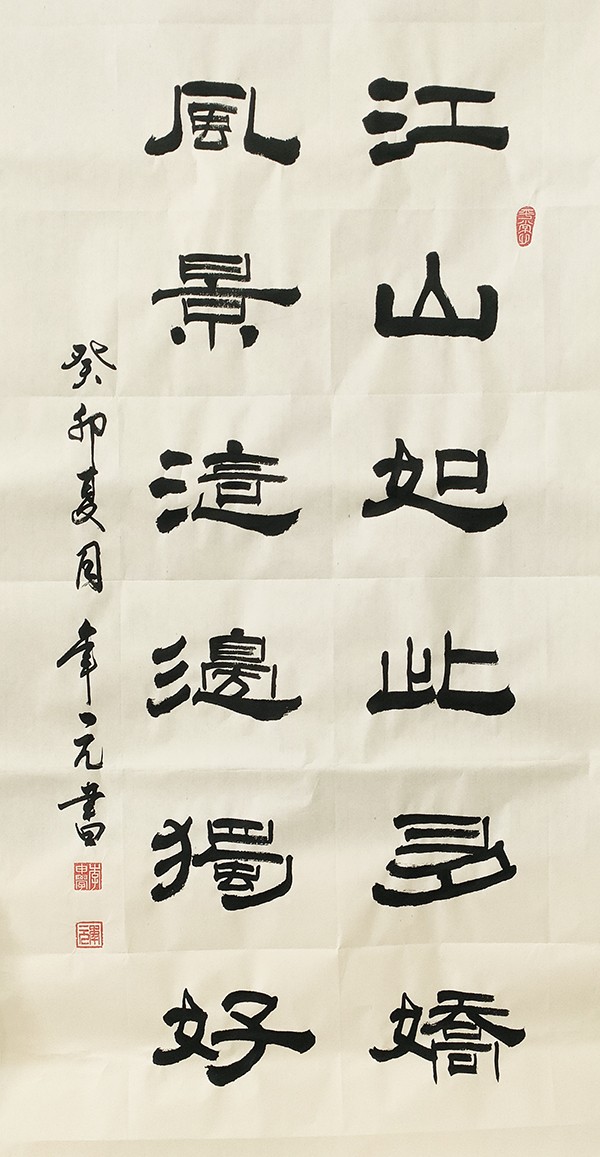 江山如此多嬌
風景這邊獨好
癸卯夏月牟元書